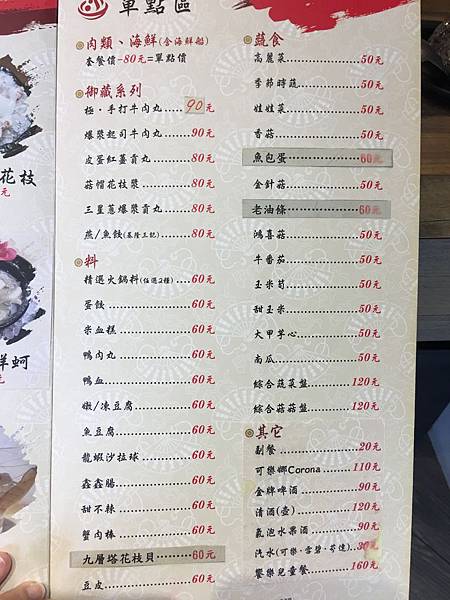 單點區
肉類、海鮮(含海鮮船)
套餐價-80元=單點價
御藏系列
極·手打牛肉丸......90元
爆漿起司牛肉丸......90元
皮蛋紅薑貢丸......80元
菇帽花枝漿......80元
三星蔥爆漿貢丸......80元
燕/魚餃(基隆三記)......80元
料
精選火鍋料(任選2種)......60元
蛋餃......60元
米血糕......60元
鴨肉丸......60元
鴨血......60元
嫩/凍豆腐......60元
魚豆腐......60元
龍蝦沙拉球......60元
鑫鑫腸......60元
甜不辣......60元
蟹肉棒......60元
九層塔花枝貝......60元
豆皮......60元
蔬食
高麗菜......50元
季節時蔬......50元
娃娃菜......50元
香菇......50元
魚包蛋......60元
金針菇......50元
老油條......60元
鴻喜菇......50元
牛番茄......50元
玉米筍......50元
甜玉米......50元
大甲芋心......50元
南瓜......50元
綜合蔬菜盤......120元
綜合菇菇盤......120元
其它
副餐......20元
可樂娜Corona......110元
金牌啤酒......90元
清酒(壺)......120元
氣泡水果酒......90元
汽水(可樂·雪碧·芬達)......30元
饗樂兒童餐......160元
花枝
元
鮮蚵
元